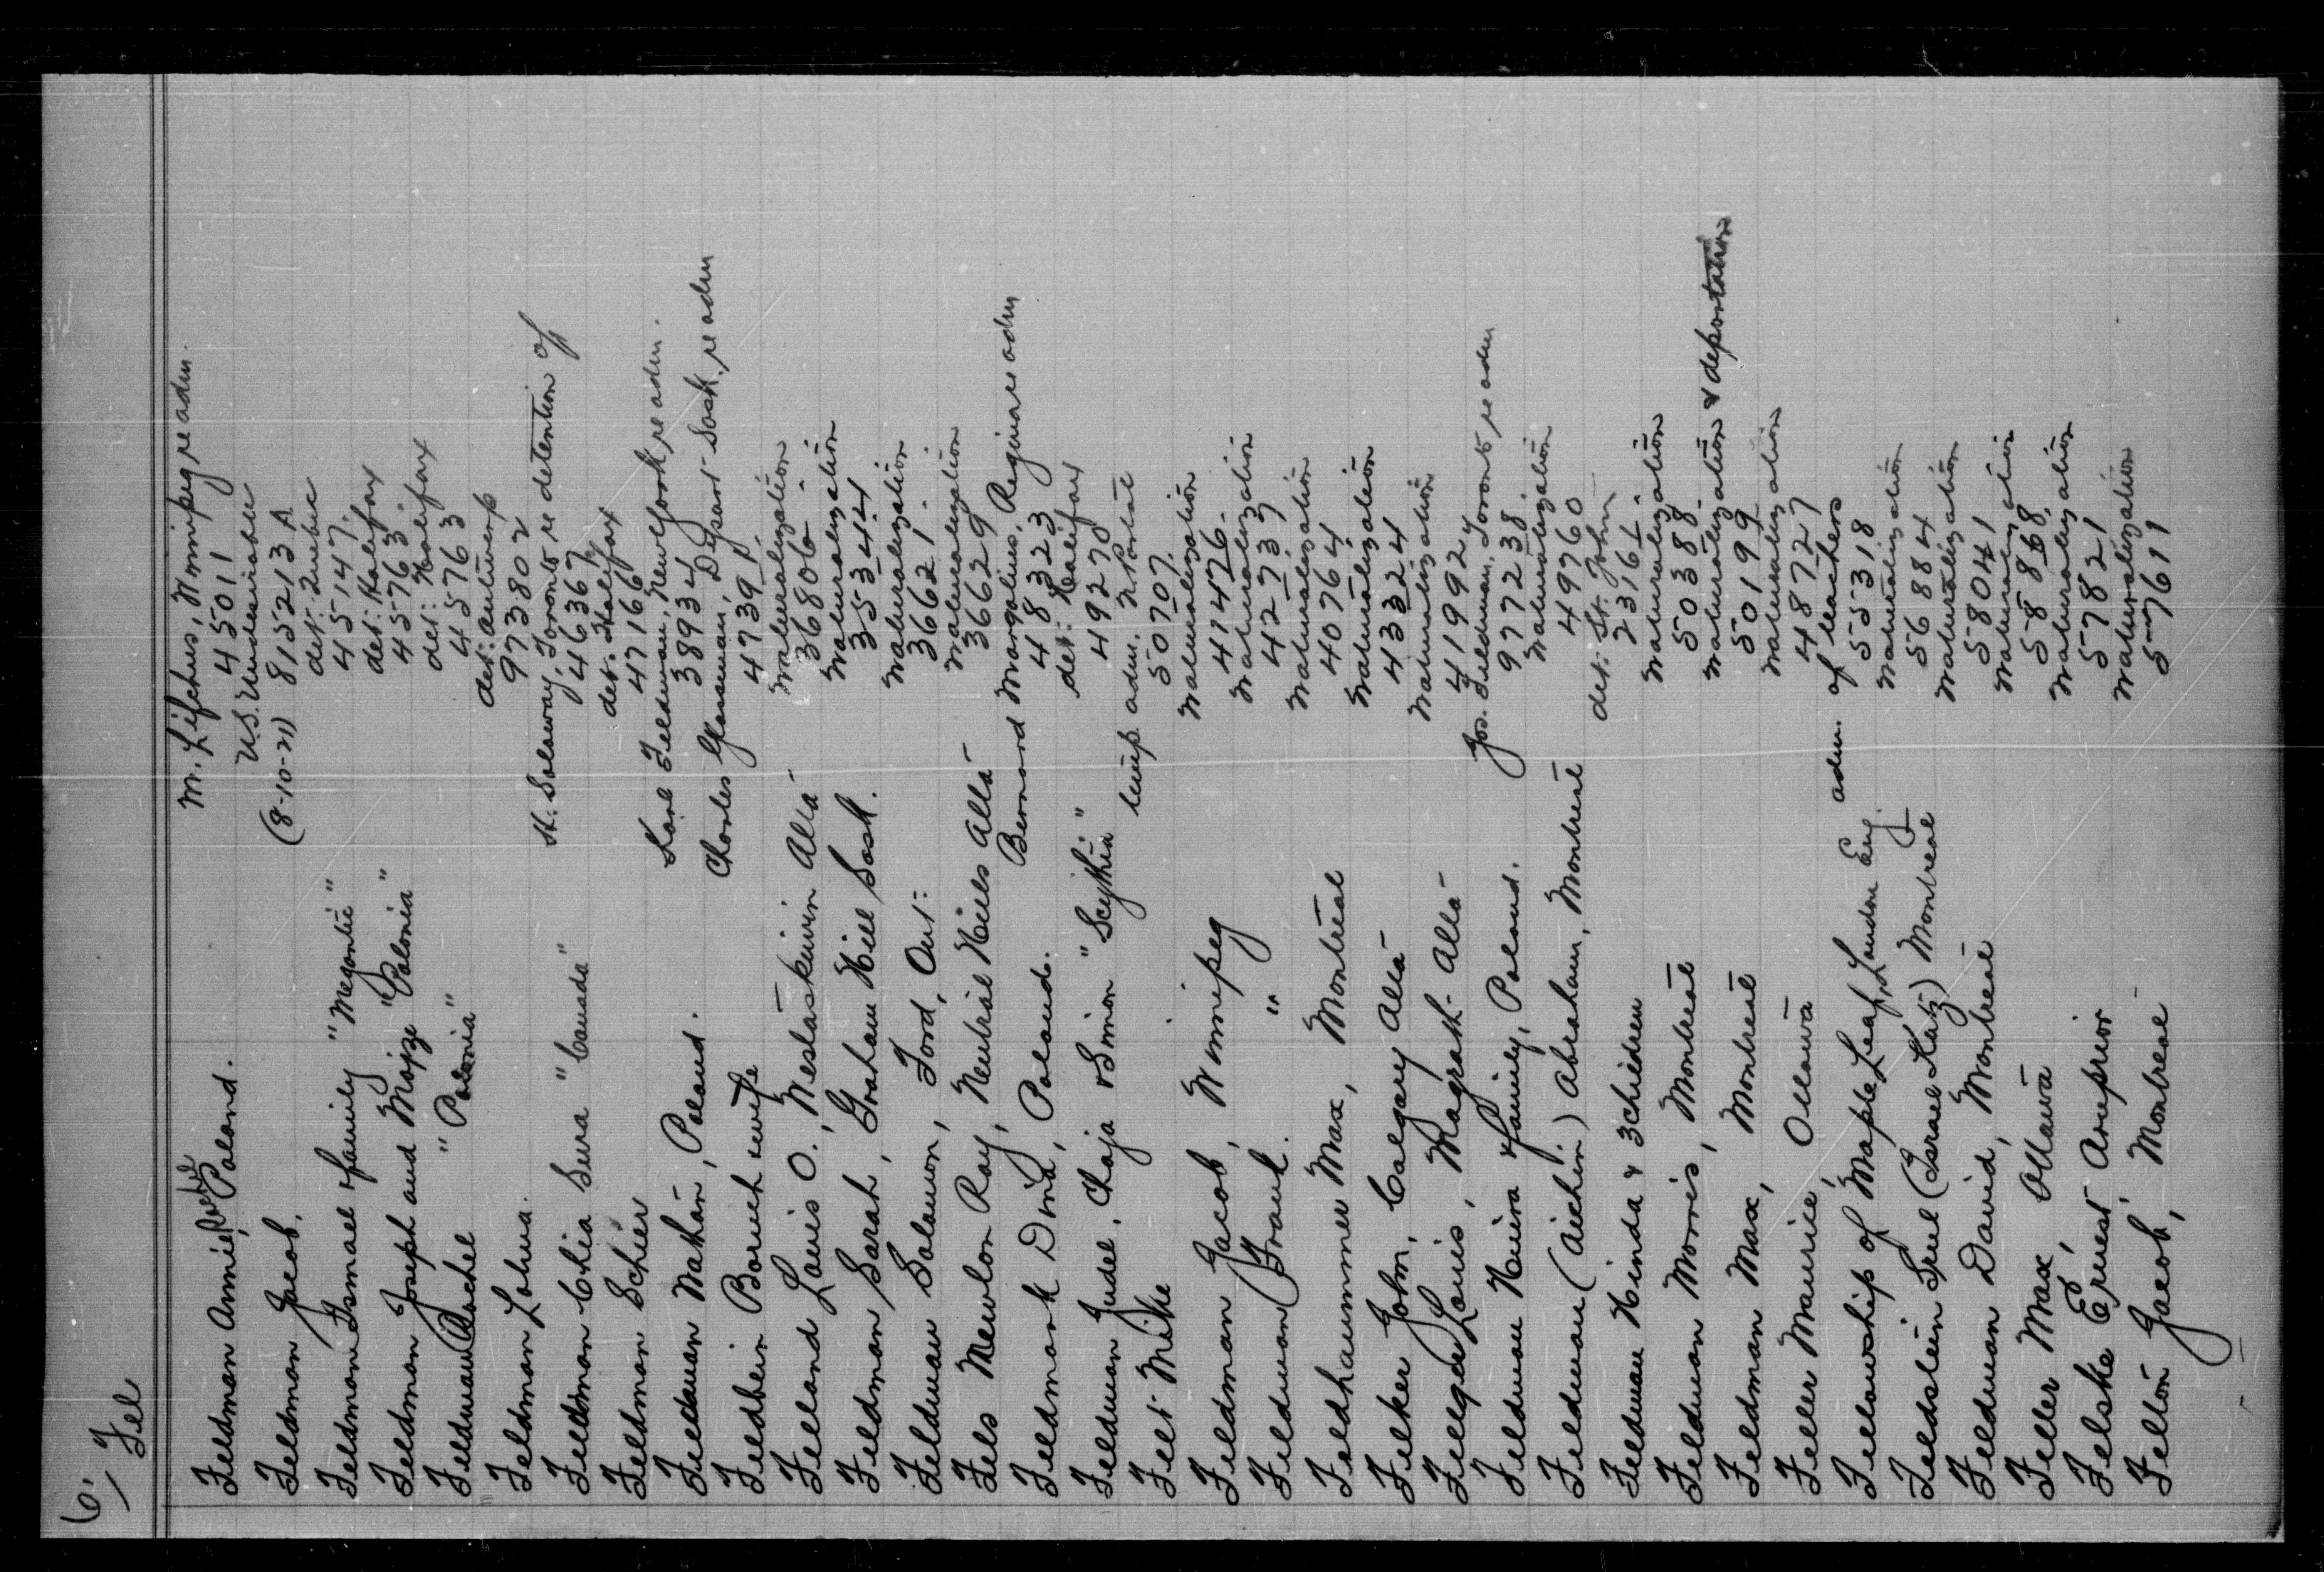 6.
Fel
M. Lifchus, Winnipeg re adm.
Feldman Annie, Poland. 45011
U.S. Undesirable
Feldman Jacob. (8-10-21) 815213 A
det: Quebec
Feldman Ismael & family "Megantic" 45147.
det: Halifax
Feldman Joseph and Mojze "Polonia" 45763.
det: Halifax
Feldman Rachel "Polonia" 45763
det: Antwerp
Feldman Lohua. 973802
H. Solway, Toronto re detention of
Feldman Chia Sura "Canada" 46367
det. Halifax
Feldman Schier 47166
Karl Feldman, New York, re adm.
Feldman Nathan, Poland. 38934
Charles Glassman, Dysart Sask. re adm
Feldbein Boruch & wife 47391
Naturalization
Felland Louis O., Wetaskiwin Alta 36806
Naturalization
Feldman Sarah, Graham Hill Sask. 35344
Naturalization
Feldman Solomon, Ford, Ont: 36621.
Naturalization
Fels Mewlon Ray, Neutral Hills Alta 36629
Bernard Margolius, Regina re adm
Feldmark Dwia, Poland. 48323
det: Halifax
Feldman Judel, Chaja & Simon "Scythia" 49270
temp. adm. N. Portal
Felt Mike 50707.
Naturalization
Feldman Jacob, Winnipeg 41476.
Naturalization
Feldman Frank. " 42737
Naturalization
Feldhammer Max, Montreal 40764
Naturalization
Felker John, Calgary Alta 43324
Naturalization
Fellger Louis, Magrath Alta 419924
Jos. Feldman, Toronto, re adm
Feldman Huira & family, Poland. 977238.
Naturalization
Feldman (Aichin) Abraham, Montreal 49760
det: St. John
Feldman Hinda & 3 children 23161.
Naturalization
Feldman Morris, Montreal 50388
Naturalization & deportation
Feldman Max, Montreal 50199
Naturalization
Feller Maurice, Ottawa 48727
adm. of teachers
Fellowship of Maple Leaf, London Eng. 55318
Naturalization
Feldstein Srul (Israel Katz) Montreal 56884
Naturalization
Feldman David, Montreal 58041
Naturalization
Feller Max, Ottawa 58868.
Naturalization
Felske Ernest Arnprior 57821
Naturalization
Felton Jacob, Montreal 57611